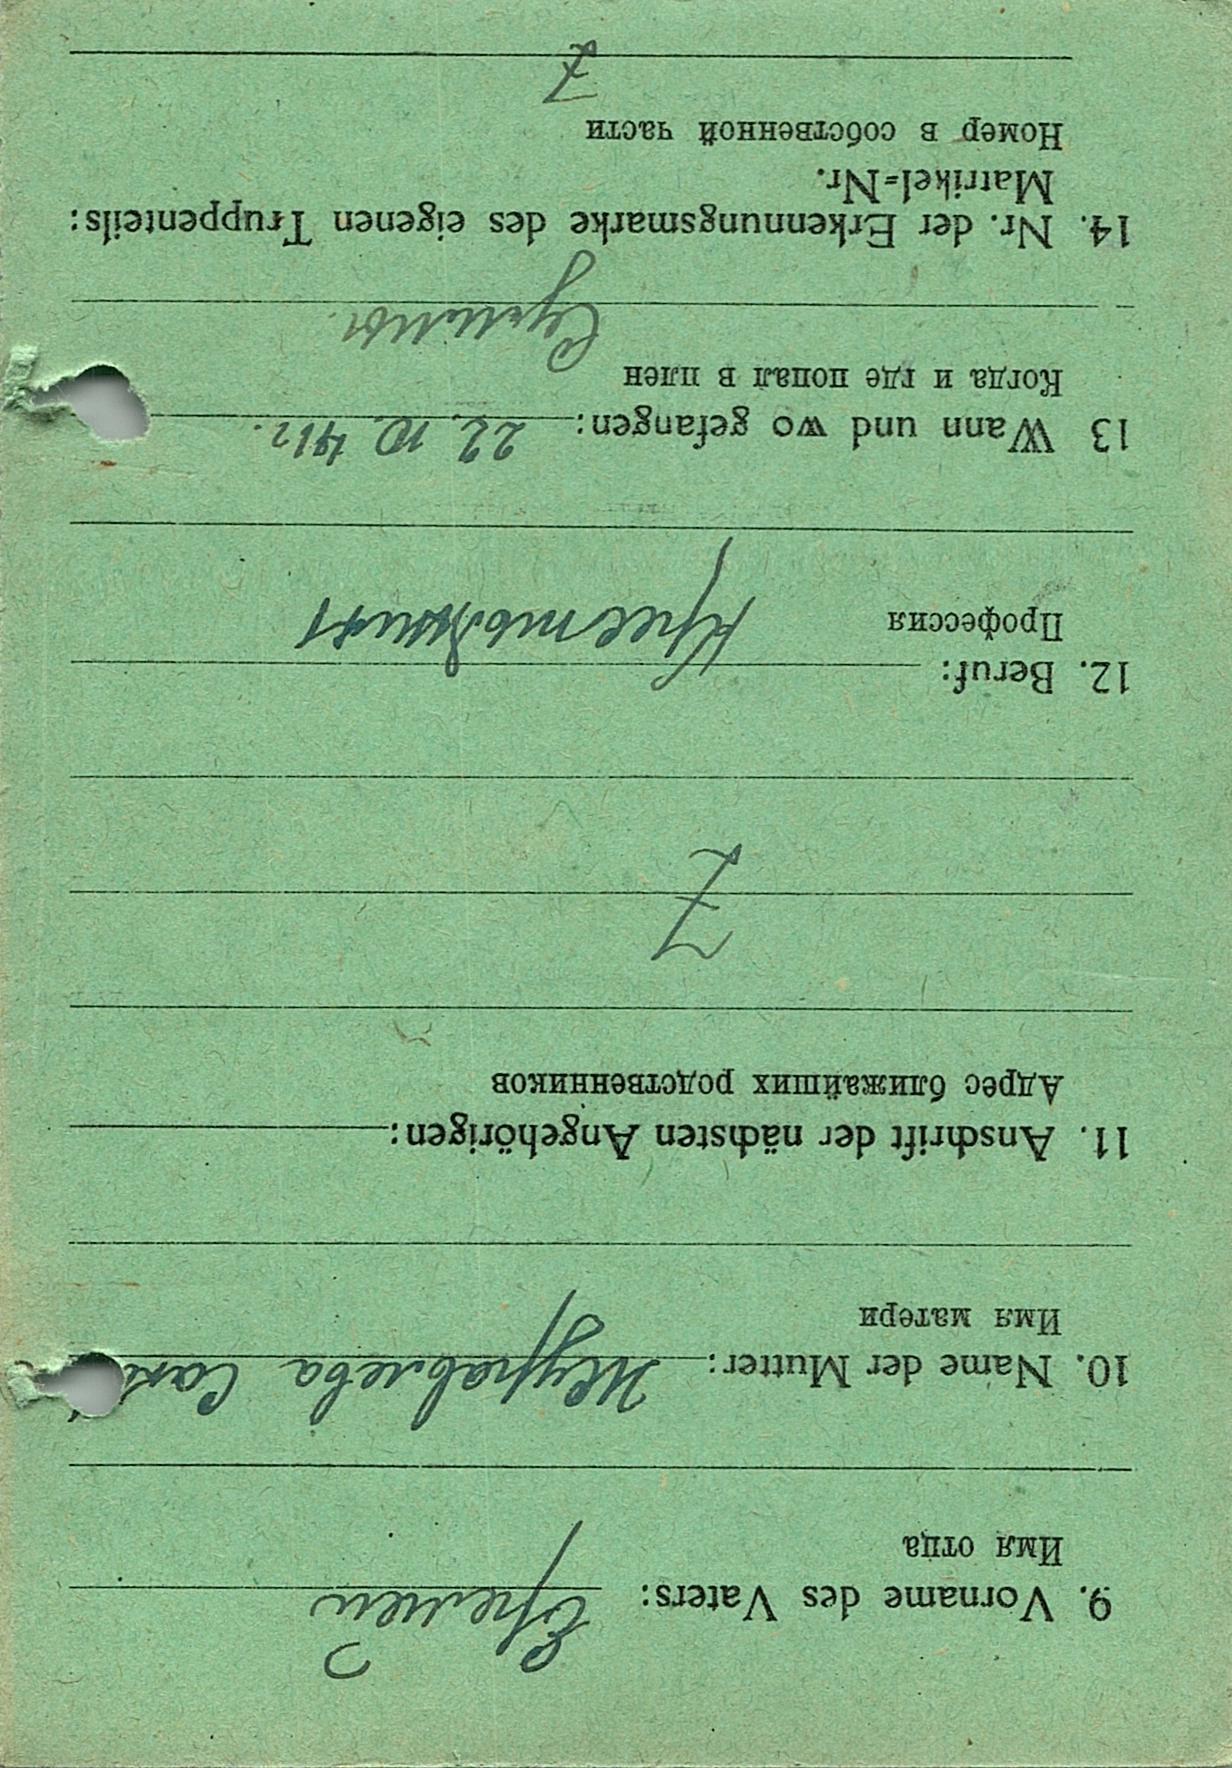 9. Vorname des Vaters: Еремей
Имя отца
10. Name der Mutter: Журавлева
Имя матери
11. Anschrift der nächsten Angehörigen:
Адрес ближайших родственников
Z
12. Beruf:
Профессия
13 Wann und wo gefangen: 22. 10. 41 г.
Когда и где попал в плен
14. Nr. der Erkennungsmarke des eigenen Truppenteils:
Matrikel=Nr.
Номер в собственной части
Z